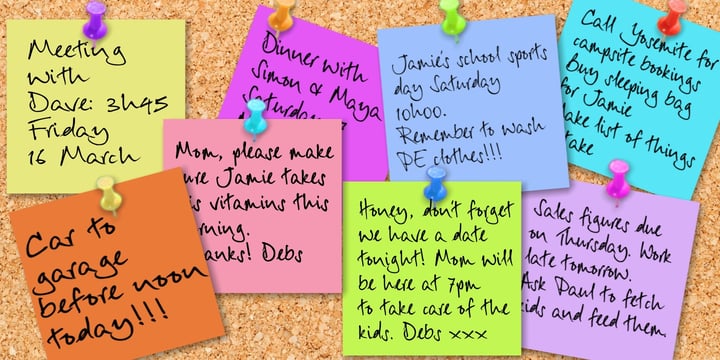 Meeting
with
Dave: 3h45
Friday
16 March
Dinner with
Simon & Maya
Saturday
Jamie's school sports
day Saturday
10h00.
Remember to wash
PE clothes!!!
Call Yosemite for
campsite bookings
Buy sleeping bag
for Jamie
list of things
Car to
garage
before noon
today!!!
Mom, please make
Jamie takes
vitamins this
Debs
Honey, don't forget
we have a date
tonight! Mom will
be here at 7pm
to take care of the
kids. Debs xxx
Sales figures due
on Thursday. Work
late tomorrow.
Ask Paul to fetch
kids and feed them.